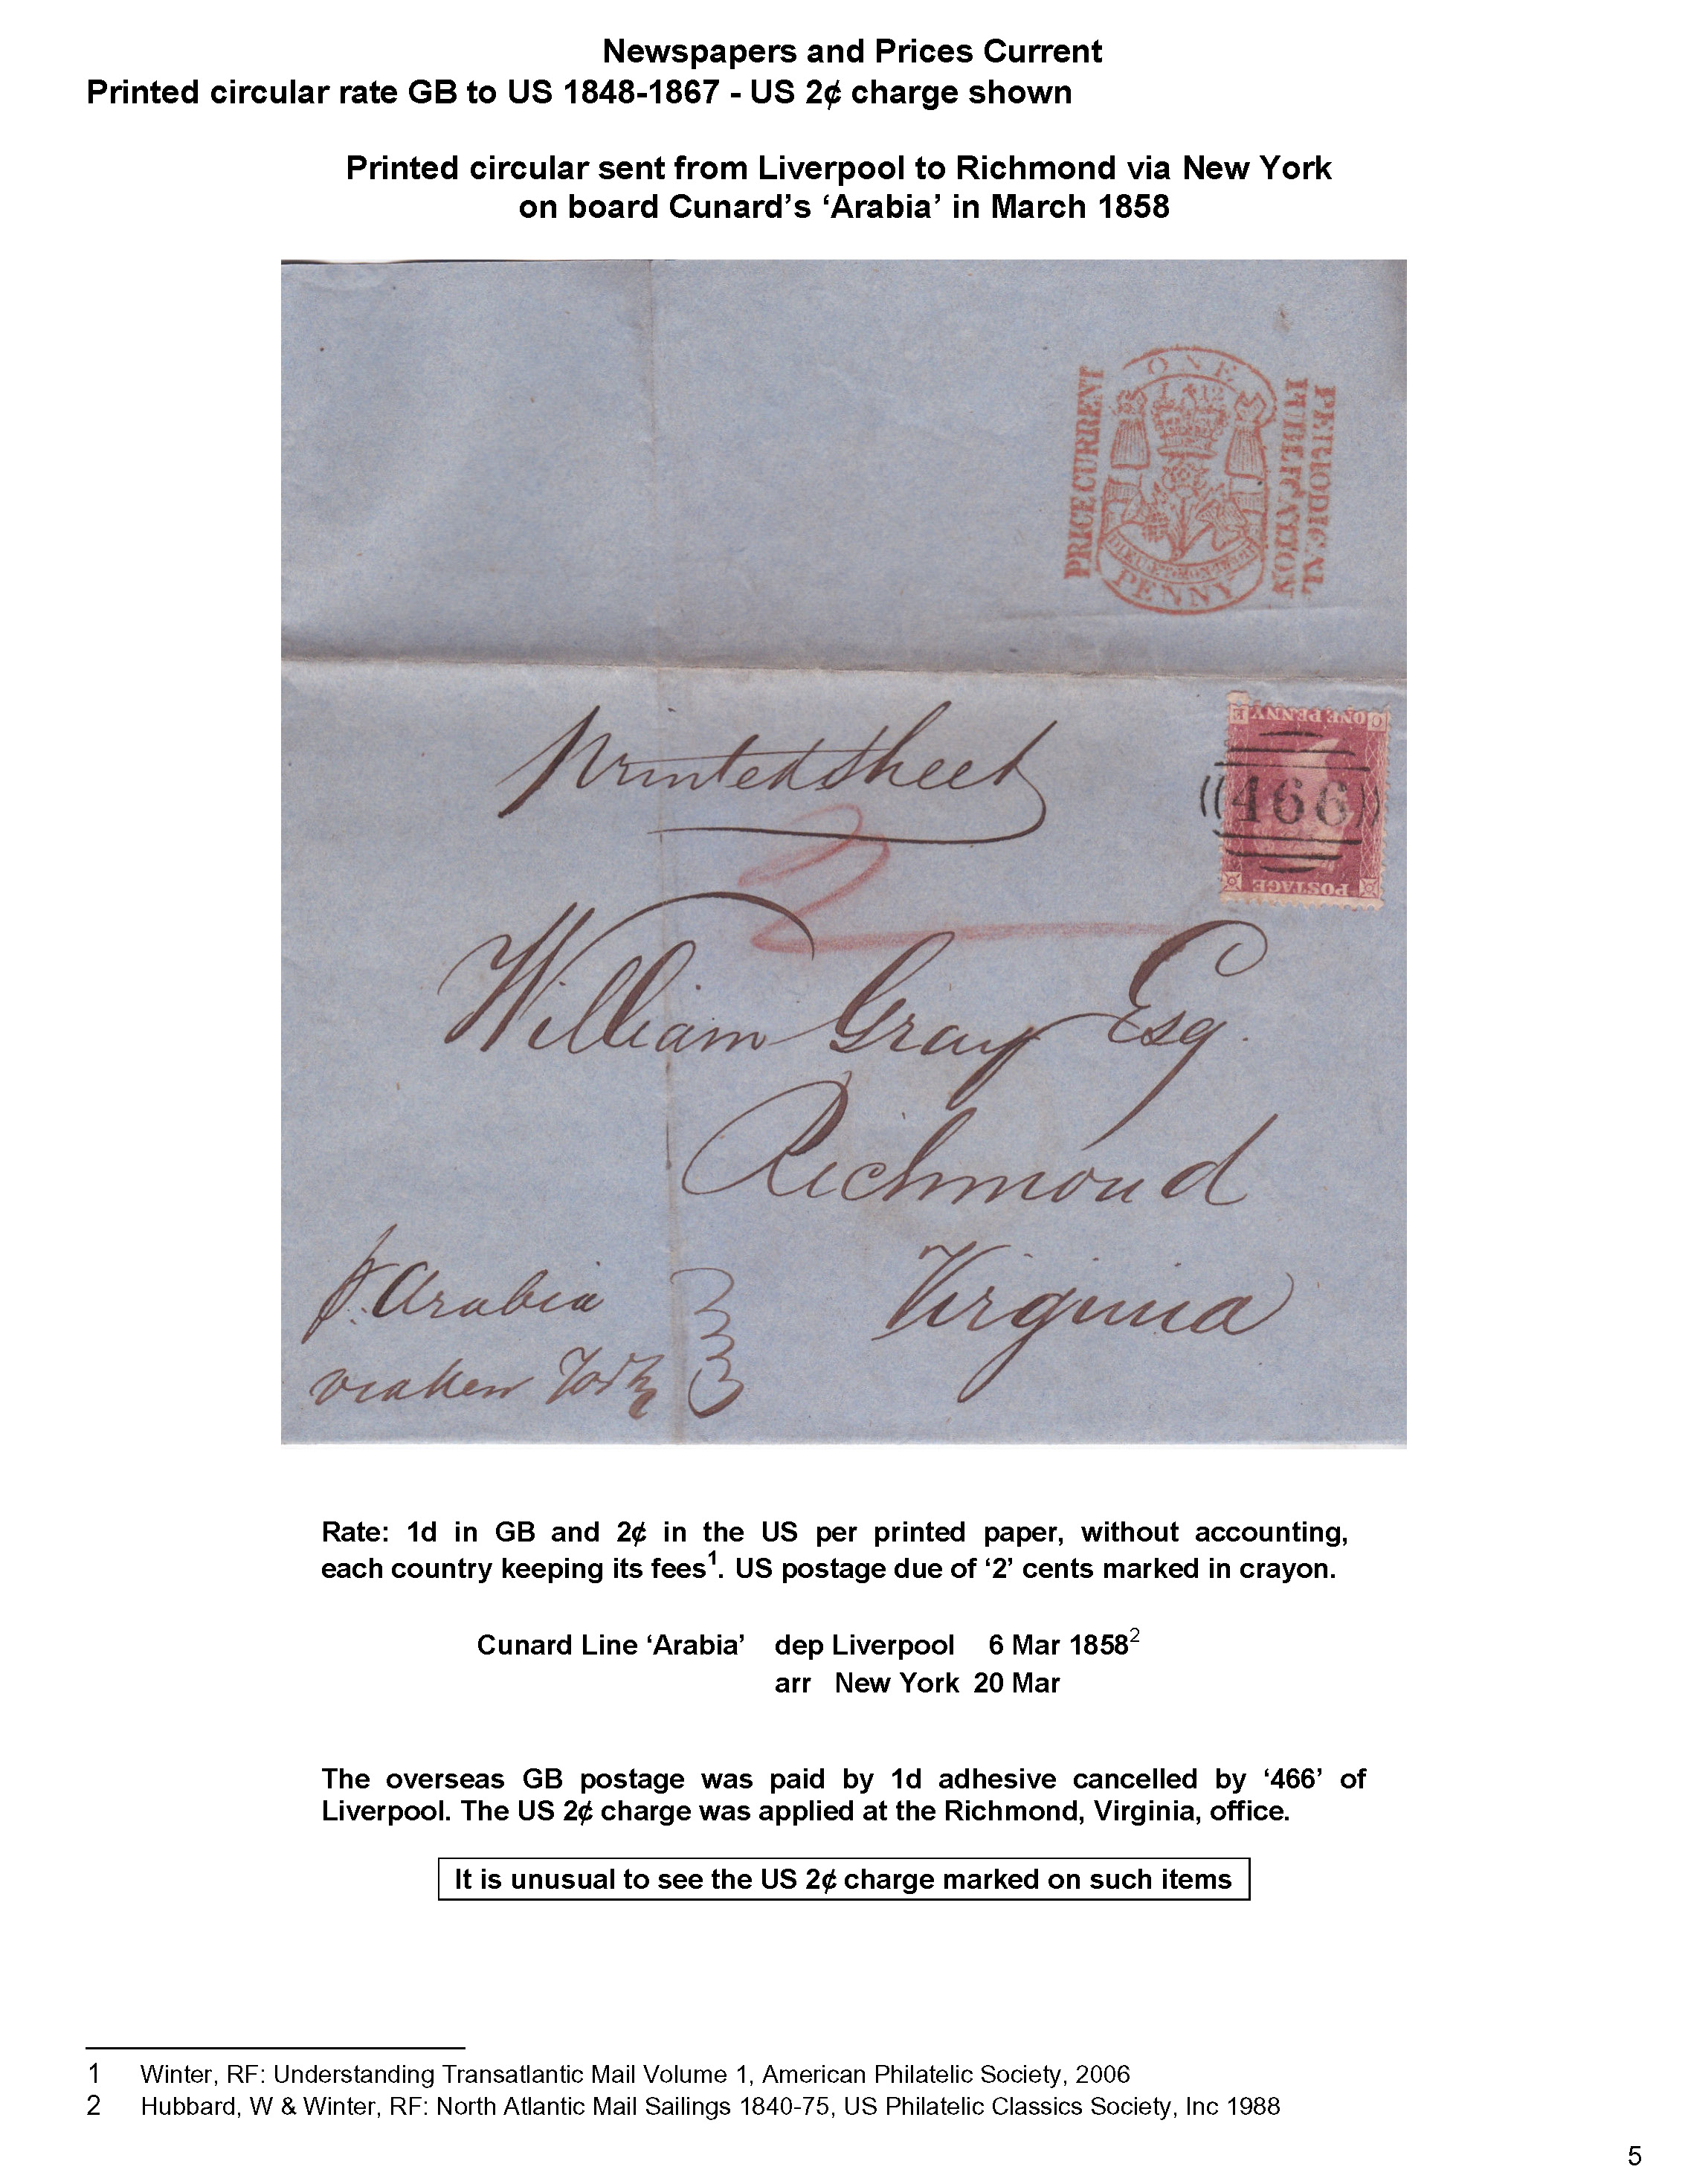 Newspapers and Prices Current
Printed circular rate GB to US 1848-1867 - US 2¢ charge shown
Printed circular sent from Liverpool to Richmond via New York
on board Cunard's 'Arabia' in March 1858
ONE
PRICE CURRENT
PERIODICAL
PUBLICATION
PENNY
Printed sheet
ONE PENNY
466
POSTAGE
2
William Gray Esq.
Richmond
Virginia
p. Arabia
via New York
Rate: 1d in GB and 2¢ in the US per printed paper, without accounting,
each country keeping its fees1. US postage due of '2' cents marked in crayon.
Cunard Line 'Arabia' dep Liverpool 6 Mar 18582
arr New York 20 Mar
The overseas GB postage was paid by 1d adhesive cancelled by '466' of
Liverpool. The US 2¢ charge was applied at the Richmond, Virginia, office.
It is unusual to see the US 2¢ charge marked on such items
1 Winter, RF: Understanding Transatlantic Mail Volume 1, American Philatelic Society, 2006
2 Hubbard, W & Winter, RF: North Atlantic Mail Sailings 1840-75, US Philatelic Classics Society, Inc 1988
5